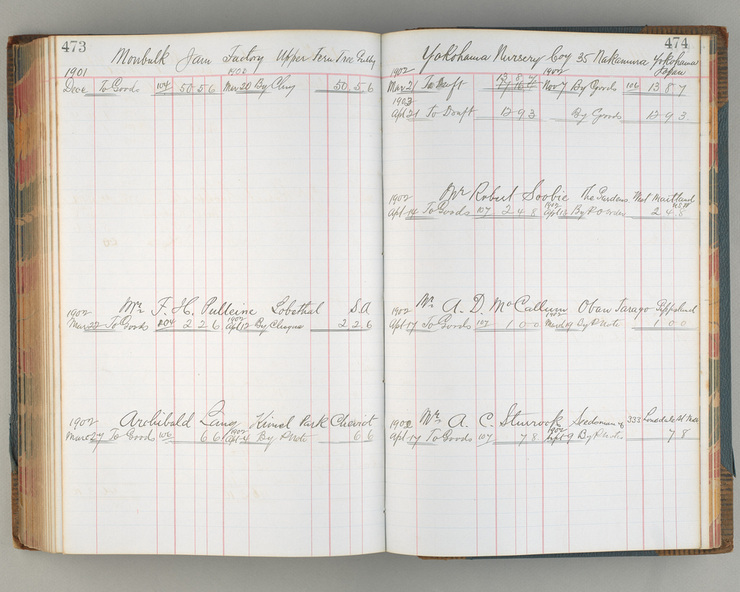 473
Monbulk Jam Factory Upper Fern Tree Gully
1901 1902
Dece To Goods 104 50 5 6 Mar 20 By Chq 50 5 6
1902 Mrs F. H. Pulleine Lobethal S.A
Mar 22 To Goods 104 2 2 6 1902 Apl 12 By Cheque 2 2 6
1902 Archibald Lang Park Cheviot
Marc 27 To Goods 106 6 6 1902 Apl 4 By PNote 6 6
474
Yokohama Nursery Coy 35 Nakamura Yokohama
1902 1902 Japan
Mar 21 To Draft 13 8 7 Nov 7 By Goods 106 13 8 7
1903
Apl 21 To Draft 12 9 3 By Goods 12 9 3
1902 Mr Robert Scobie The Gardens West Maitland
N.S.W
Apl 14 To Goods 107 2 4 8 1902 Apl By P O Order 2 4 8
1902 Mr A. D. McCallum Oban Tarago Gippsland
Apl 17 To Goods 107 1 0 0 1902 19 By PNote 1 0 0
1902 Mr A. C. Sturrock 333 Lonsdale St
Apl 17 To Goods 107 7 8 1902 9 By PNote 7 8